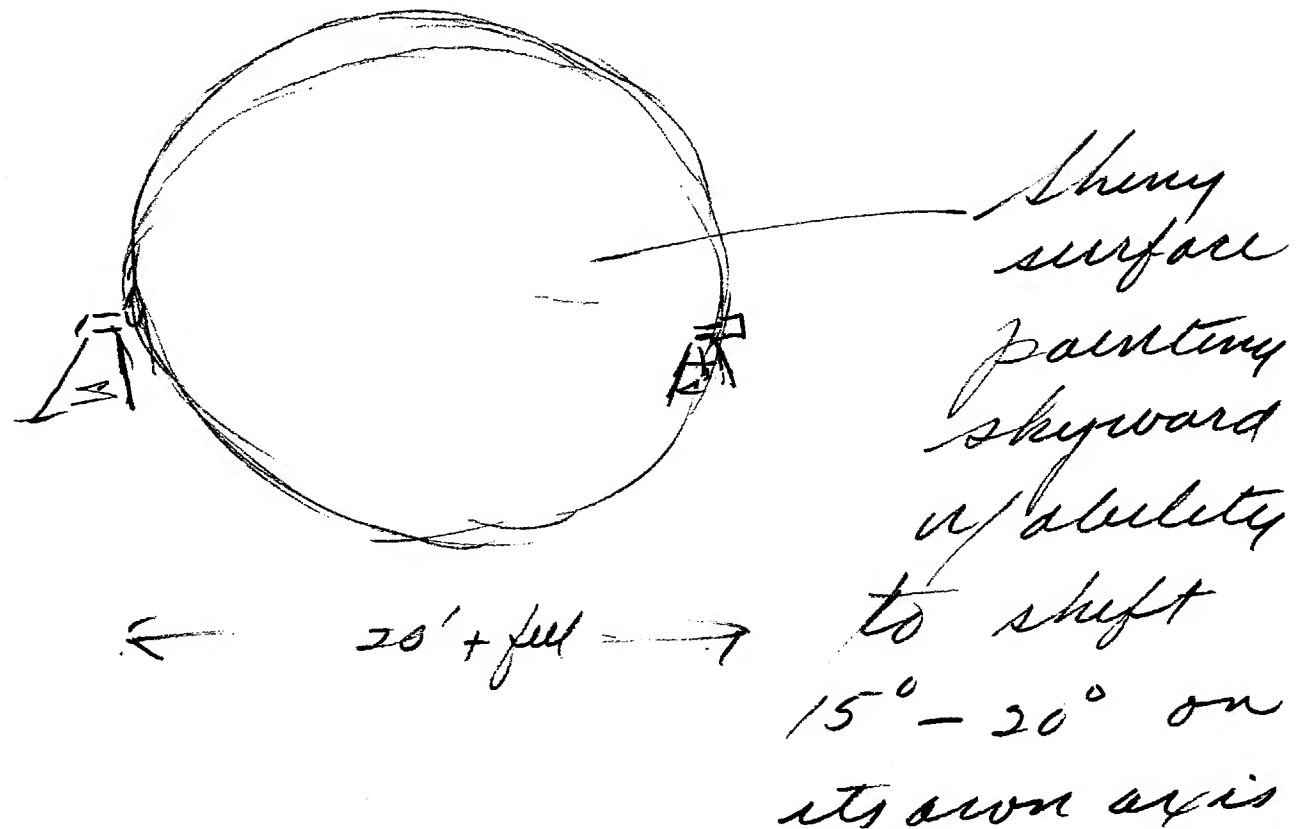 shiny
surface
pointing
skyward
w/ ability
to shift
20' + feet
15° - 20° on
its own axis